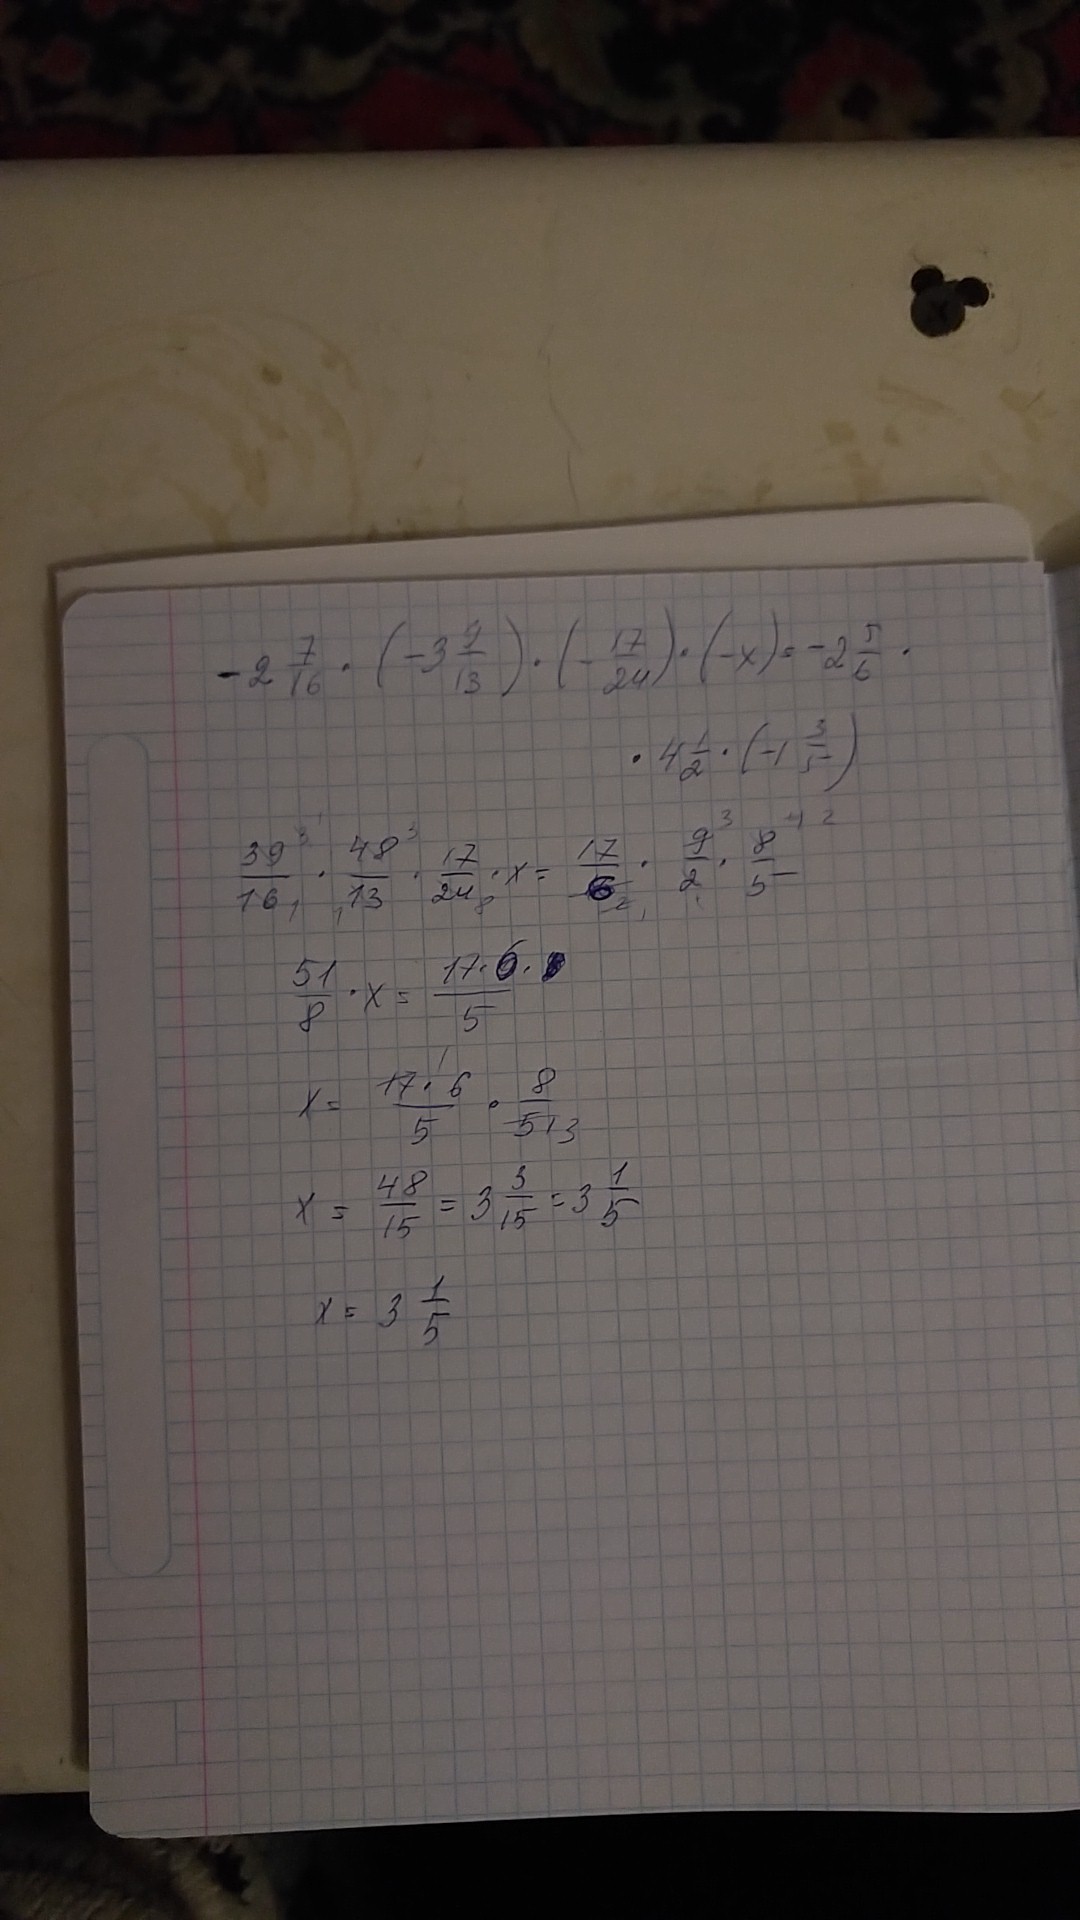 -2 7/16 · (-3 9/13) · (-17/24) · (-x) = -2 5/6 ·
· 4 1/2 · (-1 3/5)
39/16 · 48/13 · 17/24 · x = 17/6 · 9/2 · 8/5
51/8 · x = 17·6·/5
x = 17·6/5 · 8/51
x = 48/15 = 3 3/15 = 3 1/5
x = 3 1/5